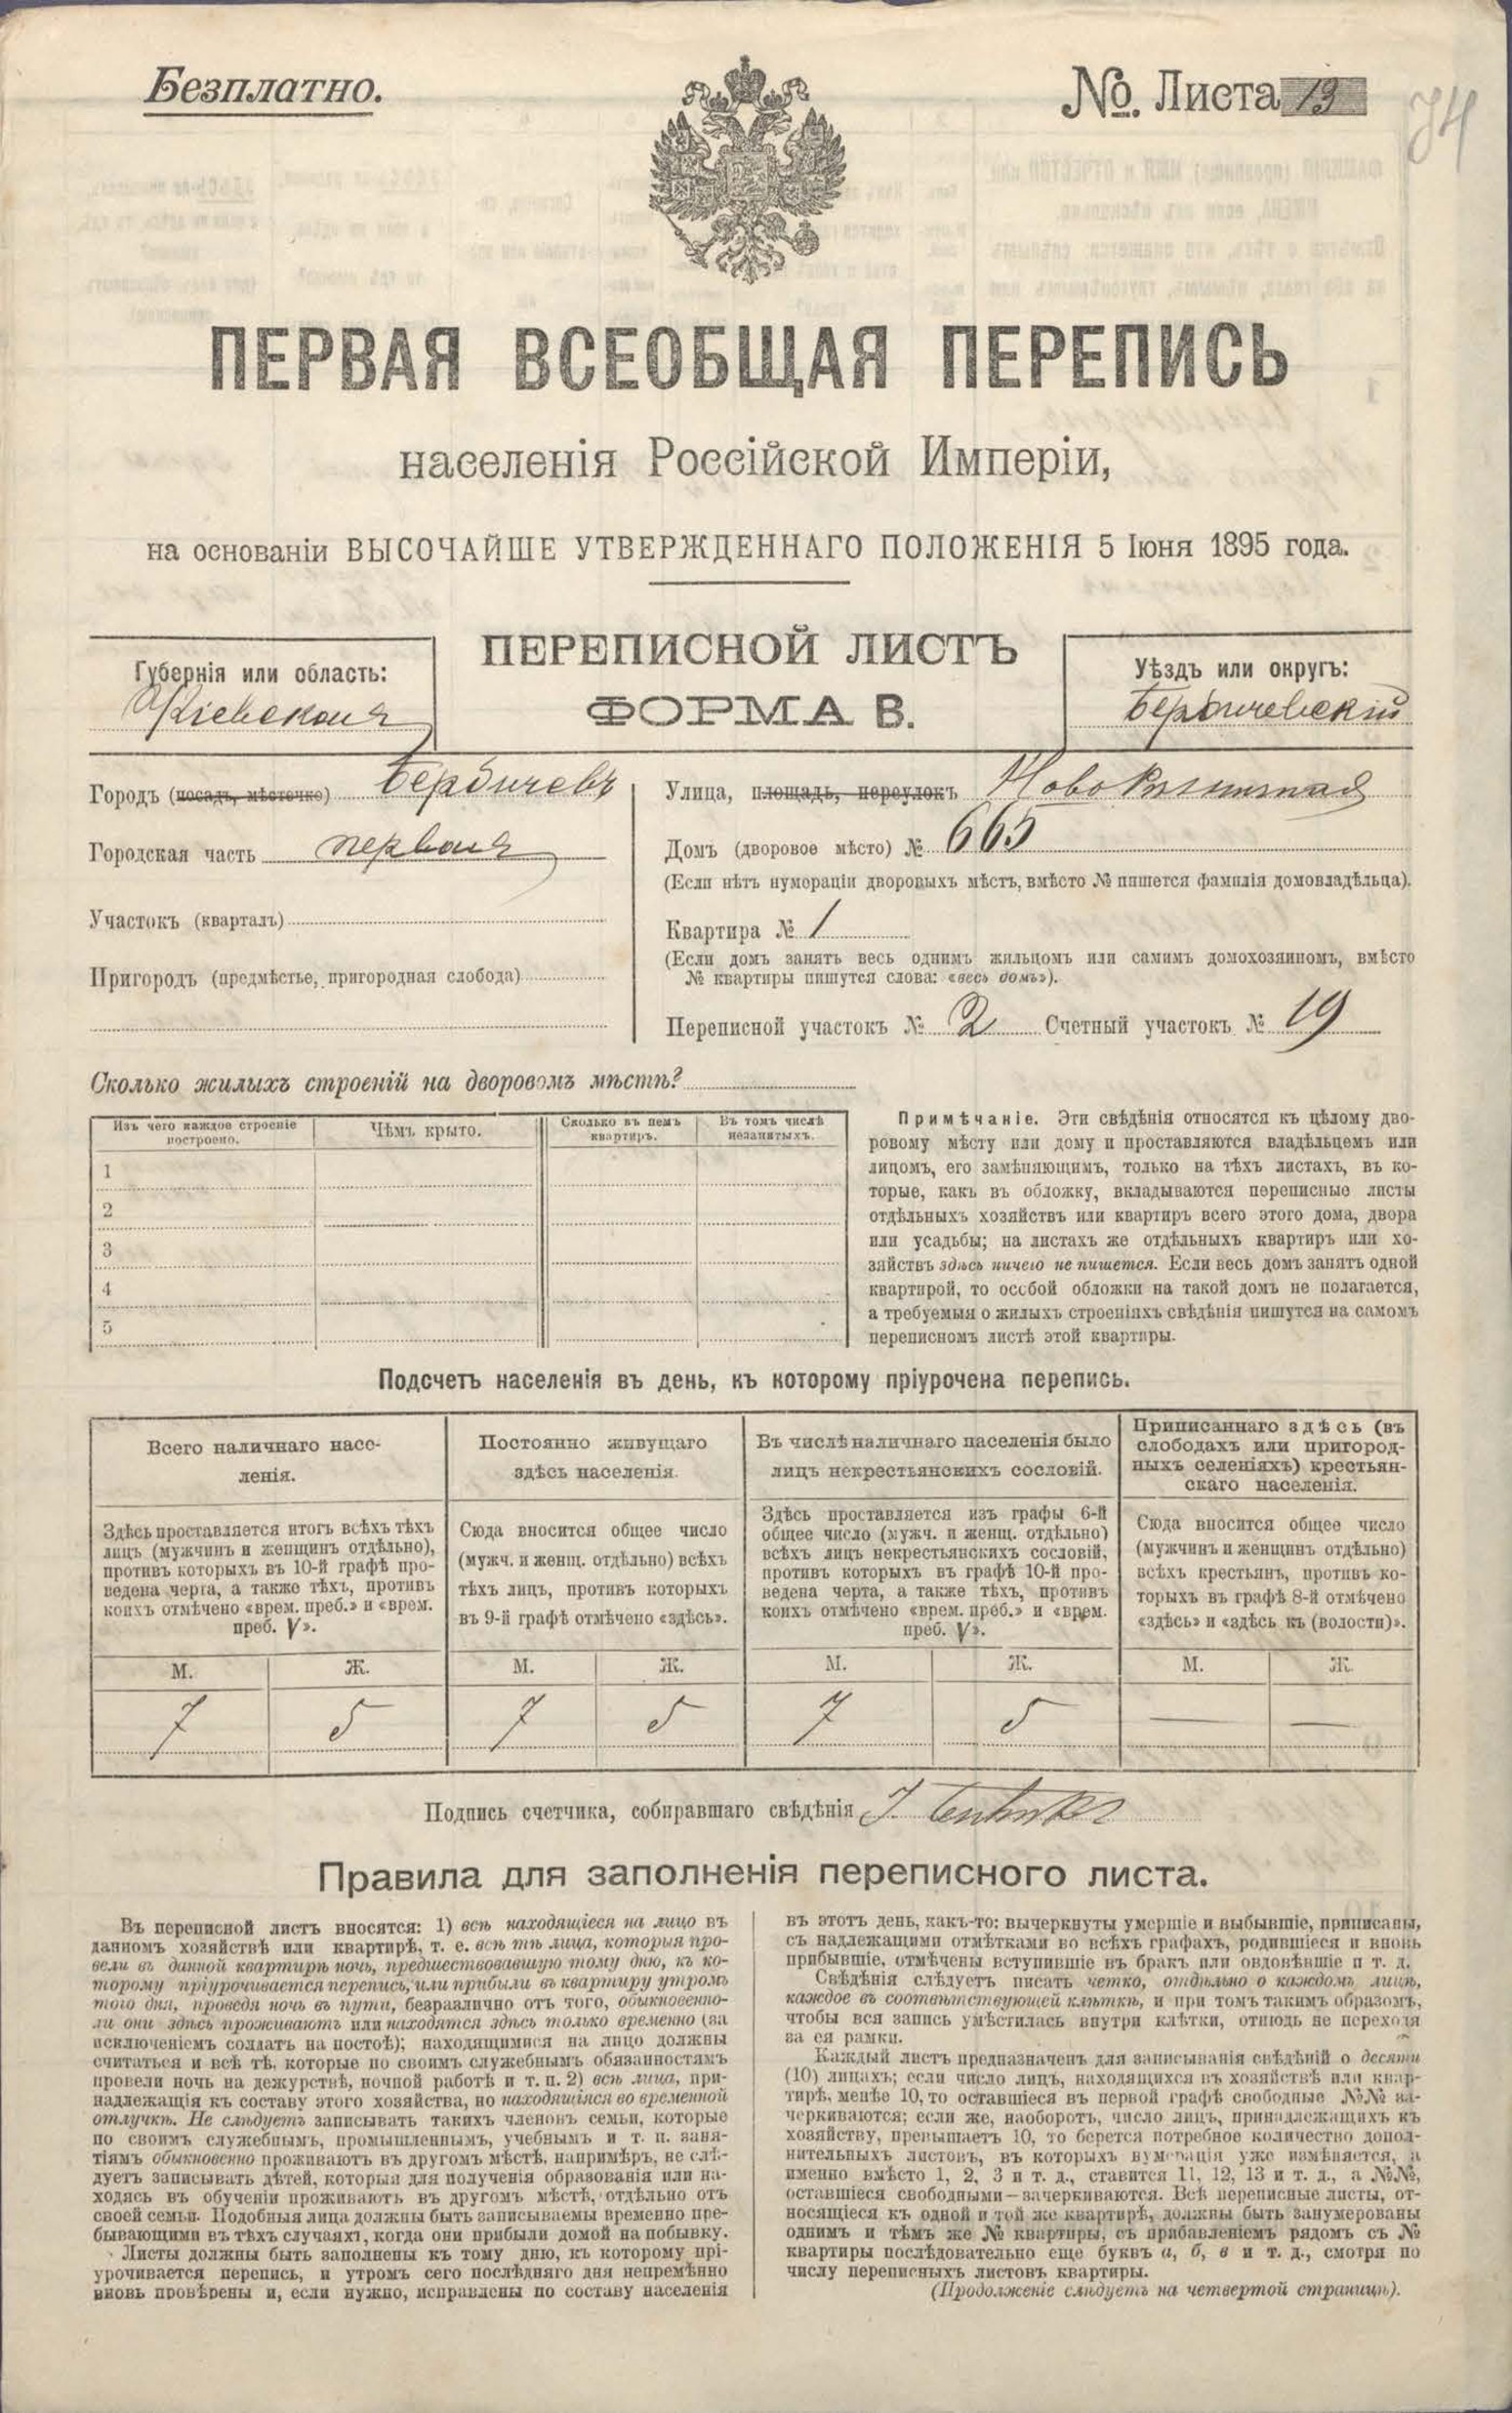 Безплатно.
№ Листа 13
74
ПЕРВАЯ ВСЕОБЩАЯ ПЕРЕПИСЬ
населенія Россійской Имперіи,
на основаніи ВЫСОЧАЙШЕ УТВЕРЖДЕННАГО ПОЛОЖЕНІЯ 5 Іюня 1895 года.
ПЕРЕПИСНОЙ ЛИСТЪ
ФОРМА В.
Губернія или область:
Кіевская
Уѣздъ или округъ:
Бердичевскій
Городъ (посадъ, мѣстечко) Бердичевъ
Городская часть первая
Участокъ (кварталъ)
Пригородъ (предмѣстье, пригородная слобода)
Улица, площадь, переулокъ
Домъ (дворовое мѣсто) № 665
(Если нѣтъ нумораціи дворовыхъ мѣстъ, вмѣсто № пишется фамилія домовладѣльца).
Квартира № 1
(Если домъ занятъ весь однимъ жильцомъ или самимъ домохозяиномъ, вмѣсто
№ квартиры пишутся слова: «весь домъ»).
Переписной участокъ № 2 Счетный участокъ № 19
Сколько жилыхъ строеній на дворовомъ мѣстѣ?
Изъ чего каждое строеніе
построено.
Чѣмъ крыто.
Сколько въ немъ
квартиръ.
Въ томъ числѣ
незанятыхъ.
1
2
3
4
5
Примѣчаніе. Эти свѣдѣнія относятся къ цѣлому дво-
ровому мѣсту или дому и проставляются владѣльцемъ или
лицомъ, его замѣняющимъ, только на тѣхъ листахъ, въ ко-
торые, какъ въ обложку, вкладываются переписные листы
отдѣльныхъ хозяйствъ или квартиръ всего этого дома, двора
или усадьбы; на листахъ же отдѣльныхъ квартиръ или хо-
зяйствъ здѣсь ничего не пишется. Если весь домъ занятъ одной
квартирой, то особой обложки на такой домъ не полагается,
а требуемыя о жилыхъ строеніяхъ свѣдѣнія пишутся на самомъ
переписномъ листѣ этой квартиры.
Подсчетъ населенія въ день, къ которому пріурочена перепись.
Всего наличнаго насе-
ленія.
Здѣсь проставляется итогъ всѣхъ тѣхъ
лицъ (мужчинъ и женщинъ отдѣльно),
противъ которыхъ въ 10-й графѣ про-
ведена черта, а также тѣхъ, противъ
коихъ отмѣчено «врем. преб.» и «врем.
преб. V».
М. Ж.
7 5
Постоянно живущаго
здѣсь населенія.
Сюда вносится общее число
(мужч. и женщ. отдѣльно) всѣхъ
тѣхъ лицъ, противъ которыхъ
въ 9-й графѣ отмѣчено «здѣсь».
М. Ж.
7 5
Въ числѣ наличнаго населенія было
лицъ некрестьянскихъ сословій.
Здѣсь проставляется изъ графы 6-й
общее число (мужч. и женщ. отдѣльно)
всѣхъ лицъ некрестьянскихъ сословій,
противъ которыхъ въ графѣ 10-й про-
ведена черта, а также тѣхъ, противъ
коихъ отмѣчено «врем. преб.» и «врем.
преб. V».
М. Ж.
7 5
Приписаннаго здѣсь (въ
слободахъ или пригород-
ныхъ селеніяхъ) крестьян-
скаго населенія.
Сюда вносится общее число
(мужчинъ и женщинъ отдѣльно)
всѣхъ крестьянъ, противъ ко-
торыхъ въ графѣ 8-й отмѣчено
«здѣсь» и «здѣсь къ (волости)».
М. Ж.
— —
Подпись счетчика, собиравшаго свѣдѣнія
Правила для заполненія переписного листа.
Въ переписной листъ вносятся: 1) всѣ находящіеся на лицо въ
данномъ хозяйствѣ или квартирѣ, т. е. всѣ тѣ лица, которыя про-
вели въ данной квартирѣ ночь, предшествовавшую тому дню, къ ко-
торому пріурочивается перепись, или прибыли въ квартиру утромъ
того дня, проведя ночь въ пути, безразлично отъ того, обыкновенно-
ли они здѣсь проживаютъ или находятся здѣсь только временно (за
исключеніемъ солдатъ на постоѣ); находящимися на лицо должны
считаться и всѣ тѣ, которые по своимъ служебнымъ обязанностямъ
провели ночь на дежурствѣ, ночной работѣ и т. п. 2) всѣ лица, при-
надлежащія къ составу этого хозяйства, но находящіяся во временной
отлучкѣ. Не слѣдуетъ записывать такихъ членовъ семьи, которые
по своимъ служебнымъ, промышленнымъ, учебнымъ и т. п. заня-
тіямъ обыкновенно проживаютъ въ другомъ мѣстѣ, напримѣръ, не слѣ-
дуетъ записывать дѣтей, которыя для полученія образованія или на-
ходясь въ обученіи проживаютъ въ другомъ мѣстѣ, отдѣльно отъ
своей семьи. Подобныя лица должны быть записываемы временно пре-
бывающими въ тѣхъ случаяхъ, когда они прибыли домой на побывку.
Листы должны быть заполнены къ тому дню, къ которому прі-
урочивается перепись, и утромъ сего послѣдняго дня непремѣнно
вновь провѣрены и, если нужно, исправлены по составу населенія
въ этотъ день, какъ-то: вычеркнуты умершіе и выбывшіе, приписаны,
съ надлежащими отмѣтками во всѣхъ графахъ, родившіеся и вновь
прибывшіе, отмѣчены вступившіе въ бракъ или овдовѣвшіе и т. д.
Свѣдѣнія слѣдуетъ писать четко, отдѣльно о каждомъ лицѣ,
каждое въ соотвѣтствующей клѣткѣ, и при томъ такимъ образомъ,
чтобы вся запись умѣстилась внутри клѣтки, отнюдь не переходя
за ея рамки.
Каждый листъ предназначенъ для записыванія свѣдѣній о десяти
(10) лицахъ; если число лицъ, находящихся въ хозяйствѣ или квар-
тирѣ, менѣе 10, то оставшіеся въ первой графѣ свободные №№ за-
черкиваются; если же, наоборотъ, число лицъ, принадлежащихъ къ
хозяйству, превышаетъ 10, то берется потребное количество допол-
нительныхъ листовъ, въ которыхъ нумерація уже измѣняется, а
именно вмѣсто 1, 2, 3 и т. д., ставится 11, 12, 13 и т. д., а №№,
оставшіеся свободными — зачеркиваются. Всѣ переписные листы, от-
носящіеся къ одной и той же квартирѣ, должны быть занумерованы
однимъ и тѣмъ же № квартиры, съ прибавленіемъ рядомъ съ №
квартиры послѣдовательно еще буквъ а, б, в и т. д., смотря по
числу переписныхъ листовъ квартиры.
(Продолженіе слѣдуетъ на четвертой страницѣ).